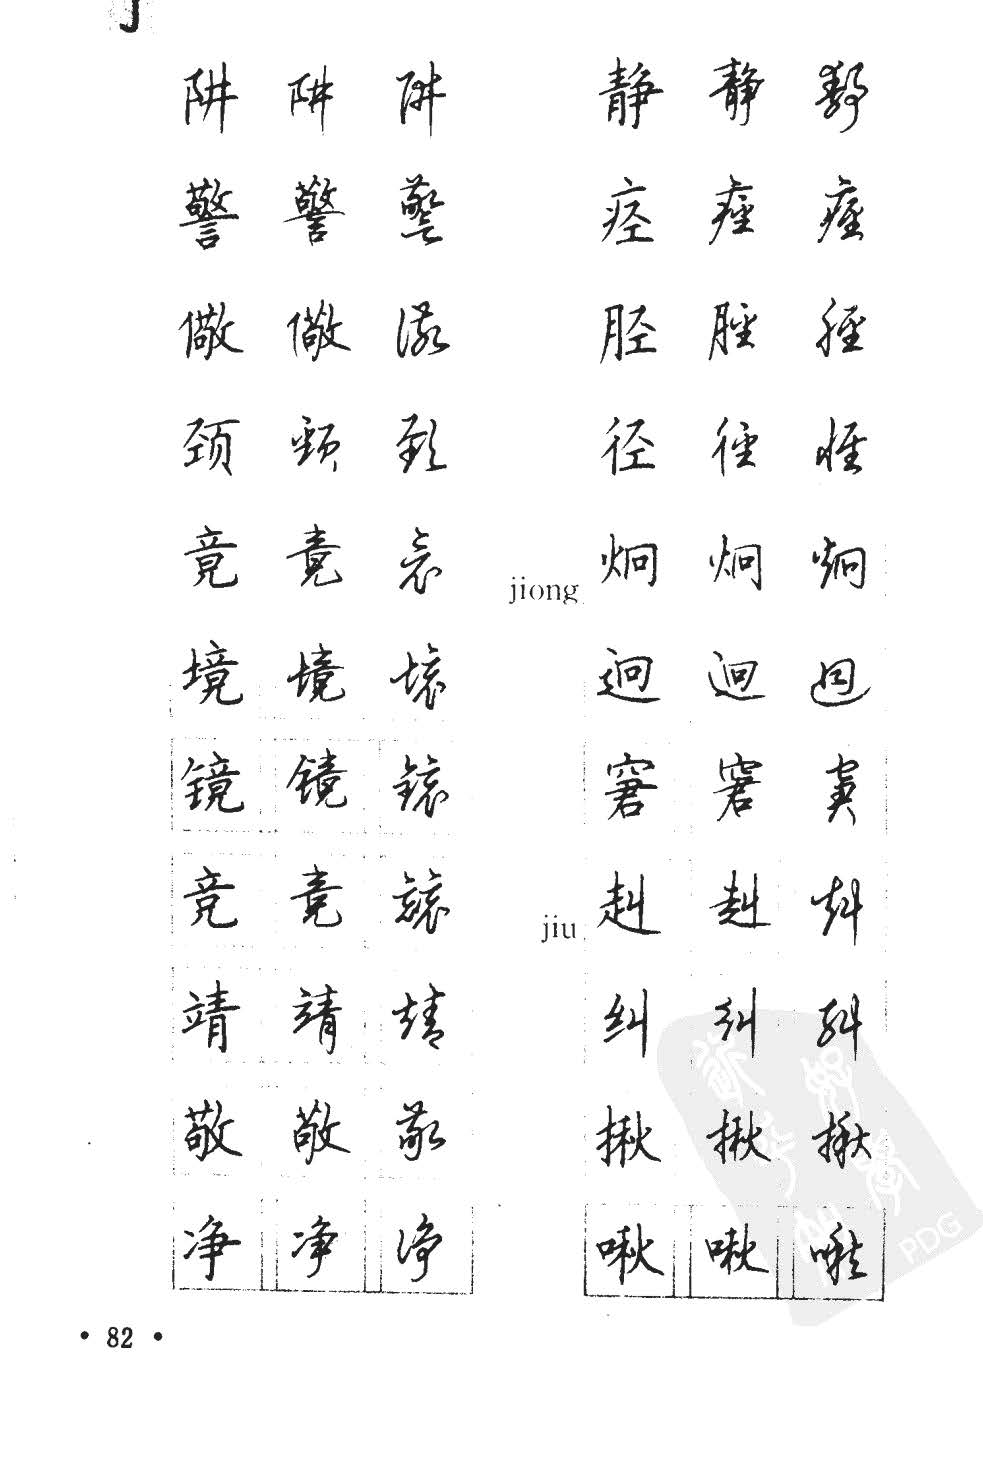 阱 阱 阱
警 警 警
儆 儆 儆
颈 頸 頸
竟 竟 竟
境 境 境
镜 镜 鏡
竞 竞 競
靖 靖 靖
敬 敬 敬
净 净 净
静 静 静
痉 痙 痙
胫 脛 脛
径 徑 徑
jiong 炯 炯 炯
迥 迥 迥
窘 窘 窘
jiu 赳 赳 赳
纠 纠 糾
揪 揪 揪
啾 啾 啾
• 82 •
PDG